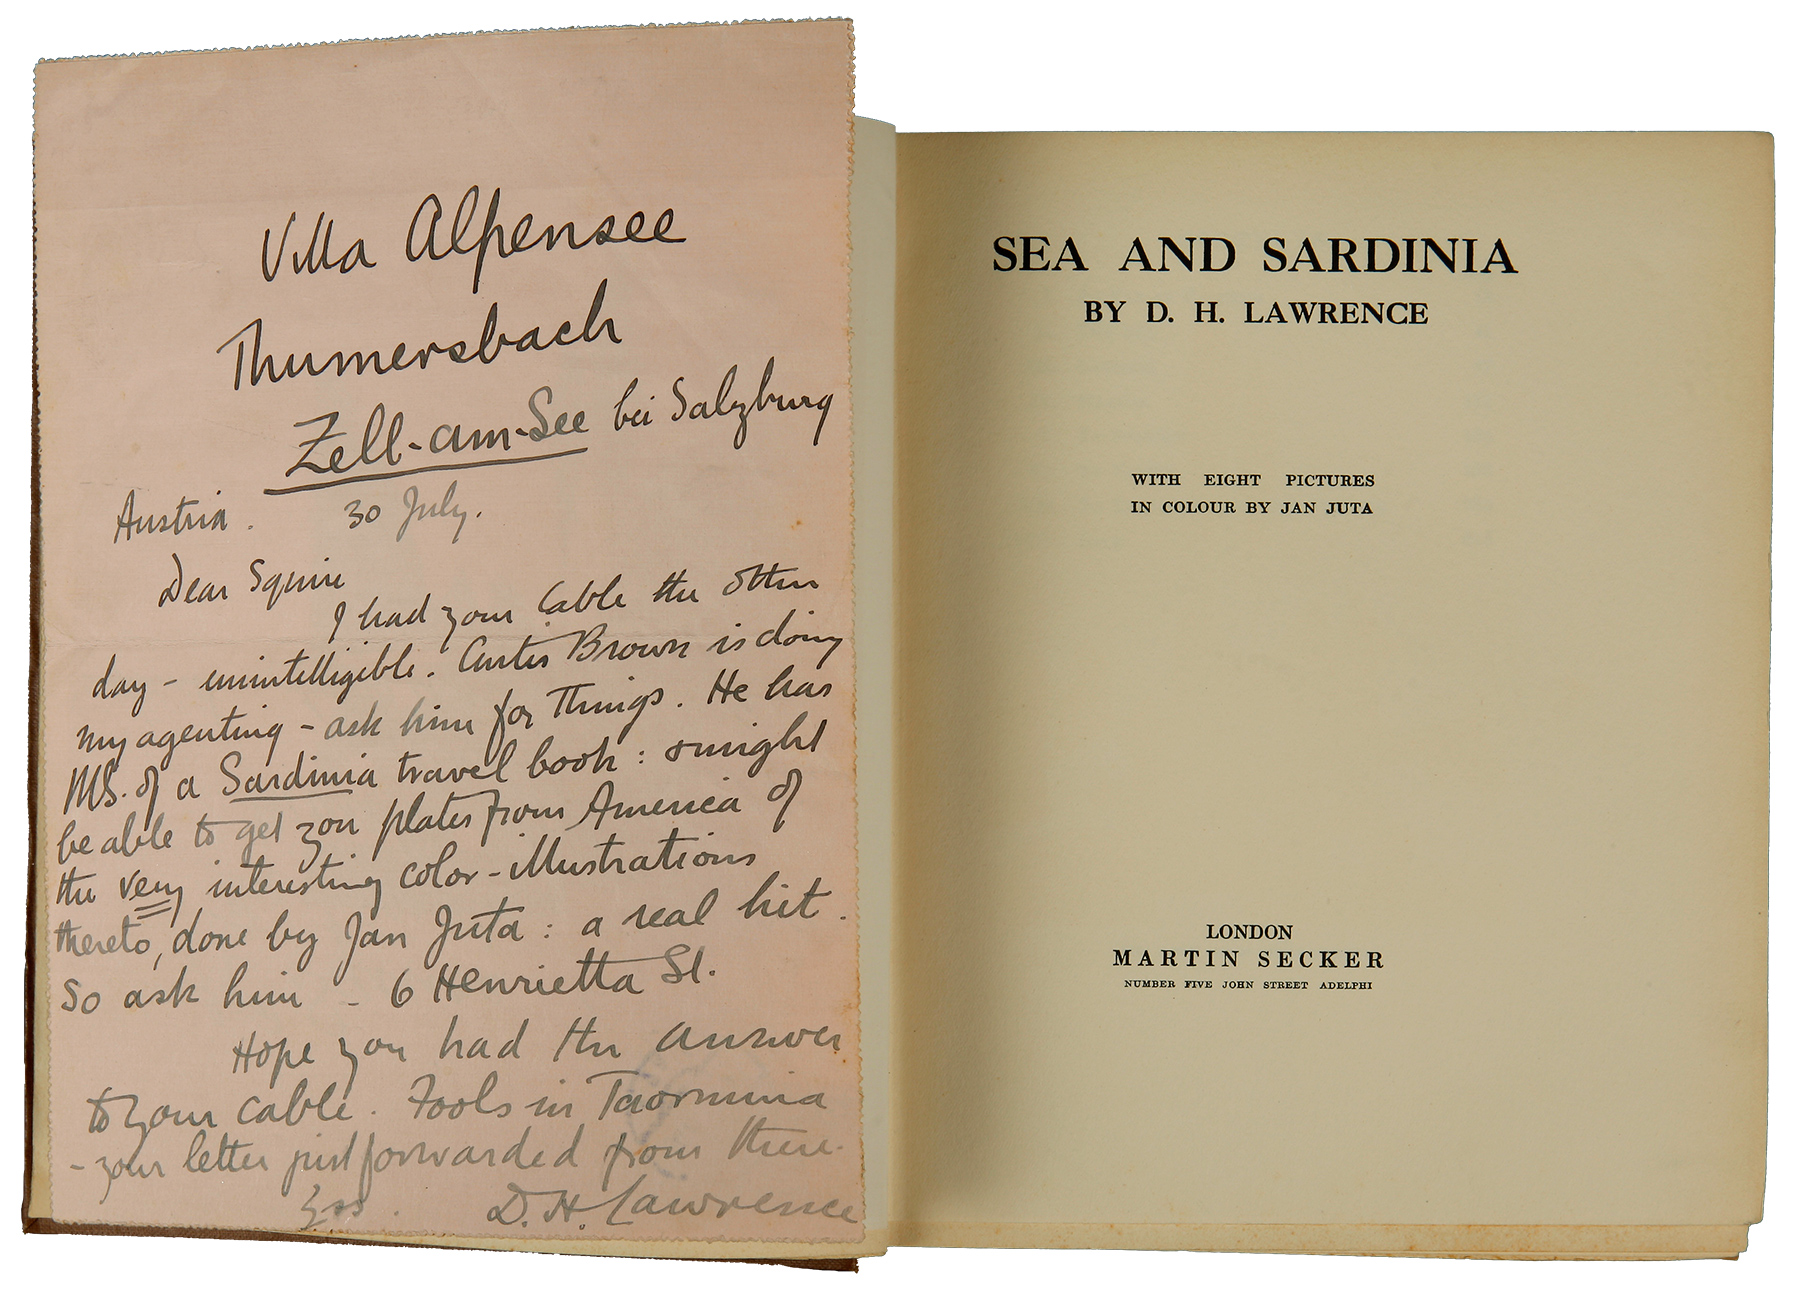 Villa Alpensee
Thumersbach
Zell-am-See bei Salzburg
Austria. 30 July.
Dear Squire
I had your cable the other
day - unintelligible. Curtis Brown is doing
my agenting - ask him for things. He has
MS. of a Sardinia travel book: might
be able to get you plates from America of
the very interesting color-illustrations
thereto, done by Jan Juta: a real hit.
So ask him - 6 Henrietta St.
Hope you had the answer
to your cable. Fools in Taormina
- your letter just forwarded from there.
Yrs. D. H. Lawrence
SEA AND SARDINIA
BY D. H. LAWRENCE
WITH EIGHT PICTURES
IN COLOUR BY JAN JUTA
LONDON
MARTIN SECKER
NUMBER FIVE JOHN STREET ADELPHI